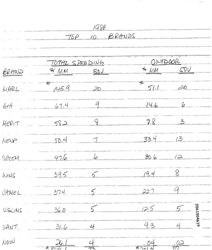 1984
TOP 10 BRANDS
TOTAL SPENDING OUTDOOR
BRAND $ MM SOV $ MM SOV
MARL 145.9 20 51.1 20
67.4 9 14.6 6
MERIT 58.2 8 7.8 3
53.4 7 33.4 13
47.6 6 30.6 12
39.5 5 19.4 8
CAMEL 37.4 5 22.7 9
36.0 5 12.5 5
VANT 31.6 4 9.3 4
NOW 26.1 4